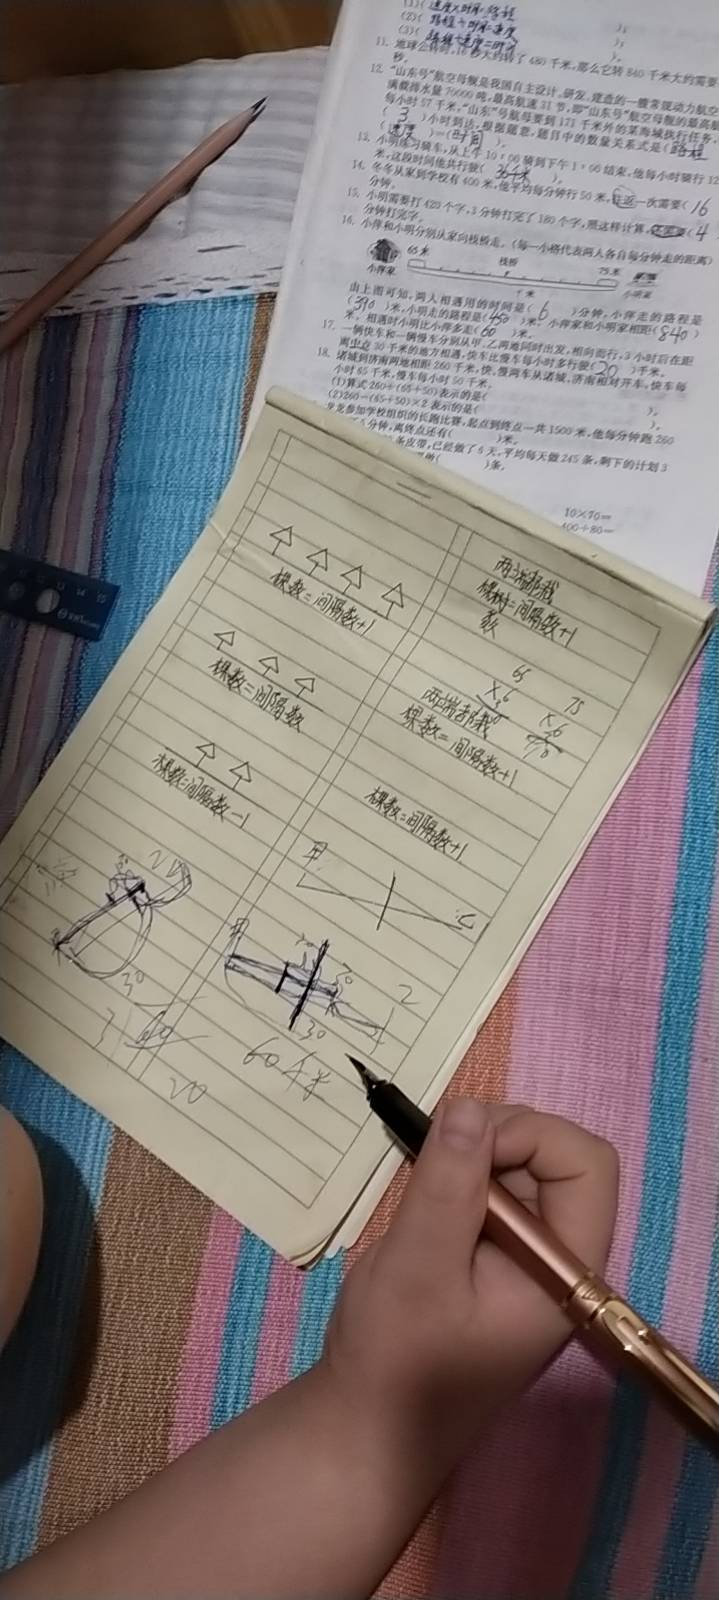 (1)( 速度×时间=路程
(2)( 路程÷时间=速度 );
(3)( 路程÷速度=时间 );
11. 地球公转时,16秒大约转了480千米,那么它转840千米大约需要
秒。
12. "山东号"航空母舰是我国自主设计、研发、建造的一艘常规动力航空
满载排水量70000吨,最高航速31节,即"山东号"航空母舰的最高航
每小时57千米,"山东"号航母要到171千米外的某海域执行任务,
( 3 )小时到达,根据题意,题目中的数量关系式是( 路程
( 速度 )=( 时间 )。
13. 小明练习骑车,从上午10:00骑到下午1:00结束,他每小时骑行12
米,这段时间他共行驶( 36千米 )。
14. 冬冬从家到学校有400米,他平均每分钟行50米,往返一次需要( 16
分钟。
15. 小明需要打420个字,3分钟打完了180个字,照这样计算,还需要( 4
分钟打完字。
16. 小萍和小明分别从家向栈桥走。(每一小格代表两人各自每分钟走的距离)
65米 栈桥 75米
小萍家 ?米 小明家
由上图可知,两人相遇用的时间是( 6 )分钟,小萍走的路程是
( 390 )米,小明走的路程是( 450 )米。小萍家和小明家相距( 840 )
米。相遇时小明比小萍多走( 60 )米。
17. 一辆快车和一辆慢车分别从甲、乙两地同时出发,相向而行,3小时后在距
离中点30千米的地方相遇,快车比慢车每小时多行驶( 20 )千米。
18. 诸城到济南两地相距260千米,快、慢两车从诸城、济南相对开车,快车每
小时65千米,慢车每小时50千米。
(1)算式260÷(65+50)表示的是( );
(2)260-(65+50)×2表示的是( )。
龙龙参加学校组织的长跑比赛,起点到终点一共1500米,他每分钟跑260
分钟,离终点还有( )米。
条皮带,已经做了6天,平均每天做245条,剩下的计划3
( )条。
10×70=
400÷80=
棵数=间隔数+1
棵数=间隔数
棵数=间隔数-1
两端都栽
棵树=间隔数+1
数
65
×6
75
×6
两端都栽
棵数=间隔数+1
棵数=间隔数+1
甲
乙
甲
30
30
60千米
20